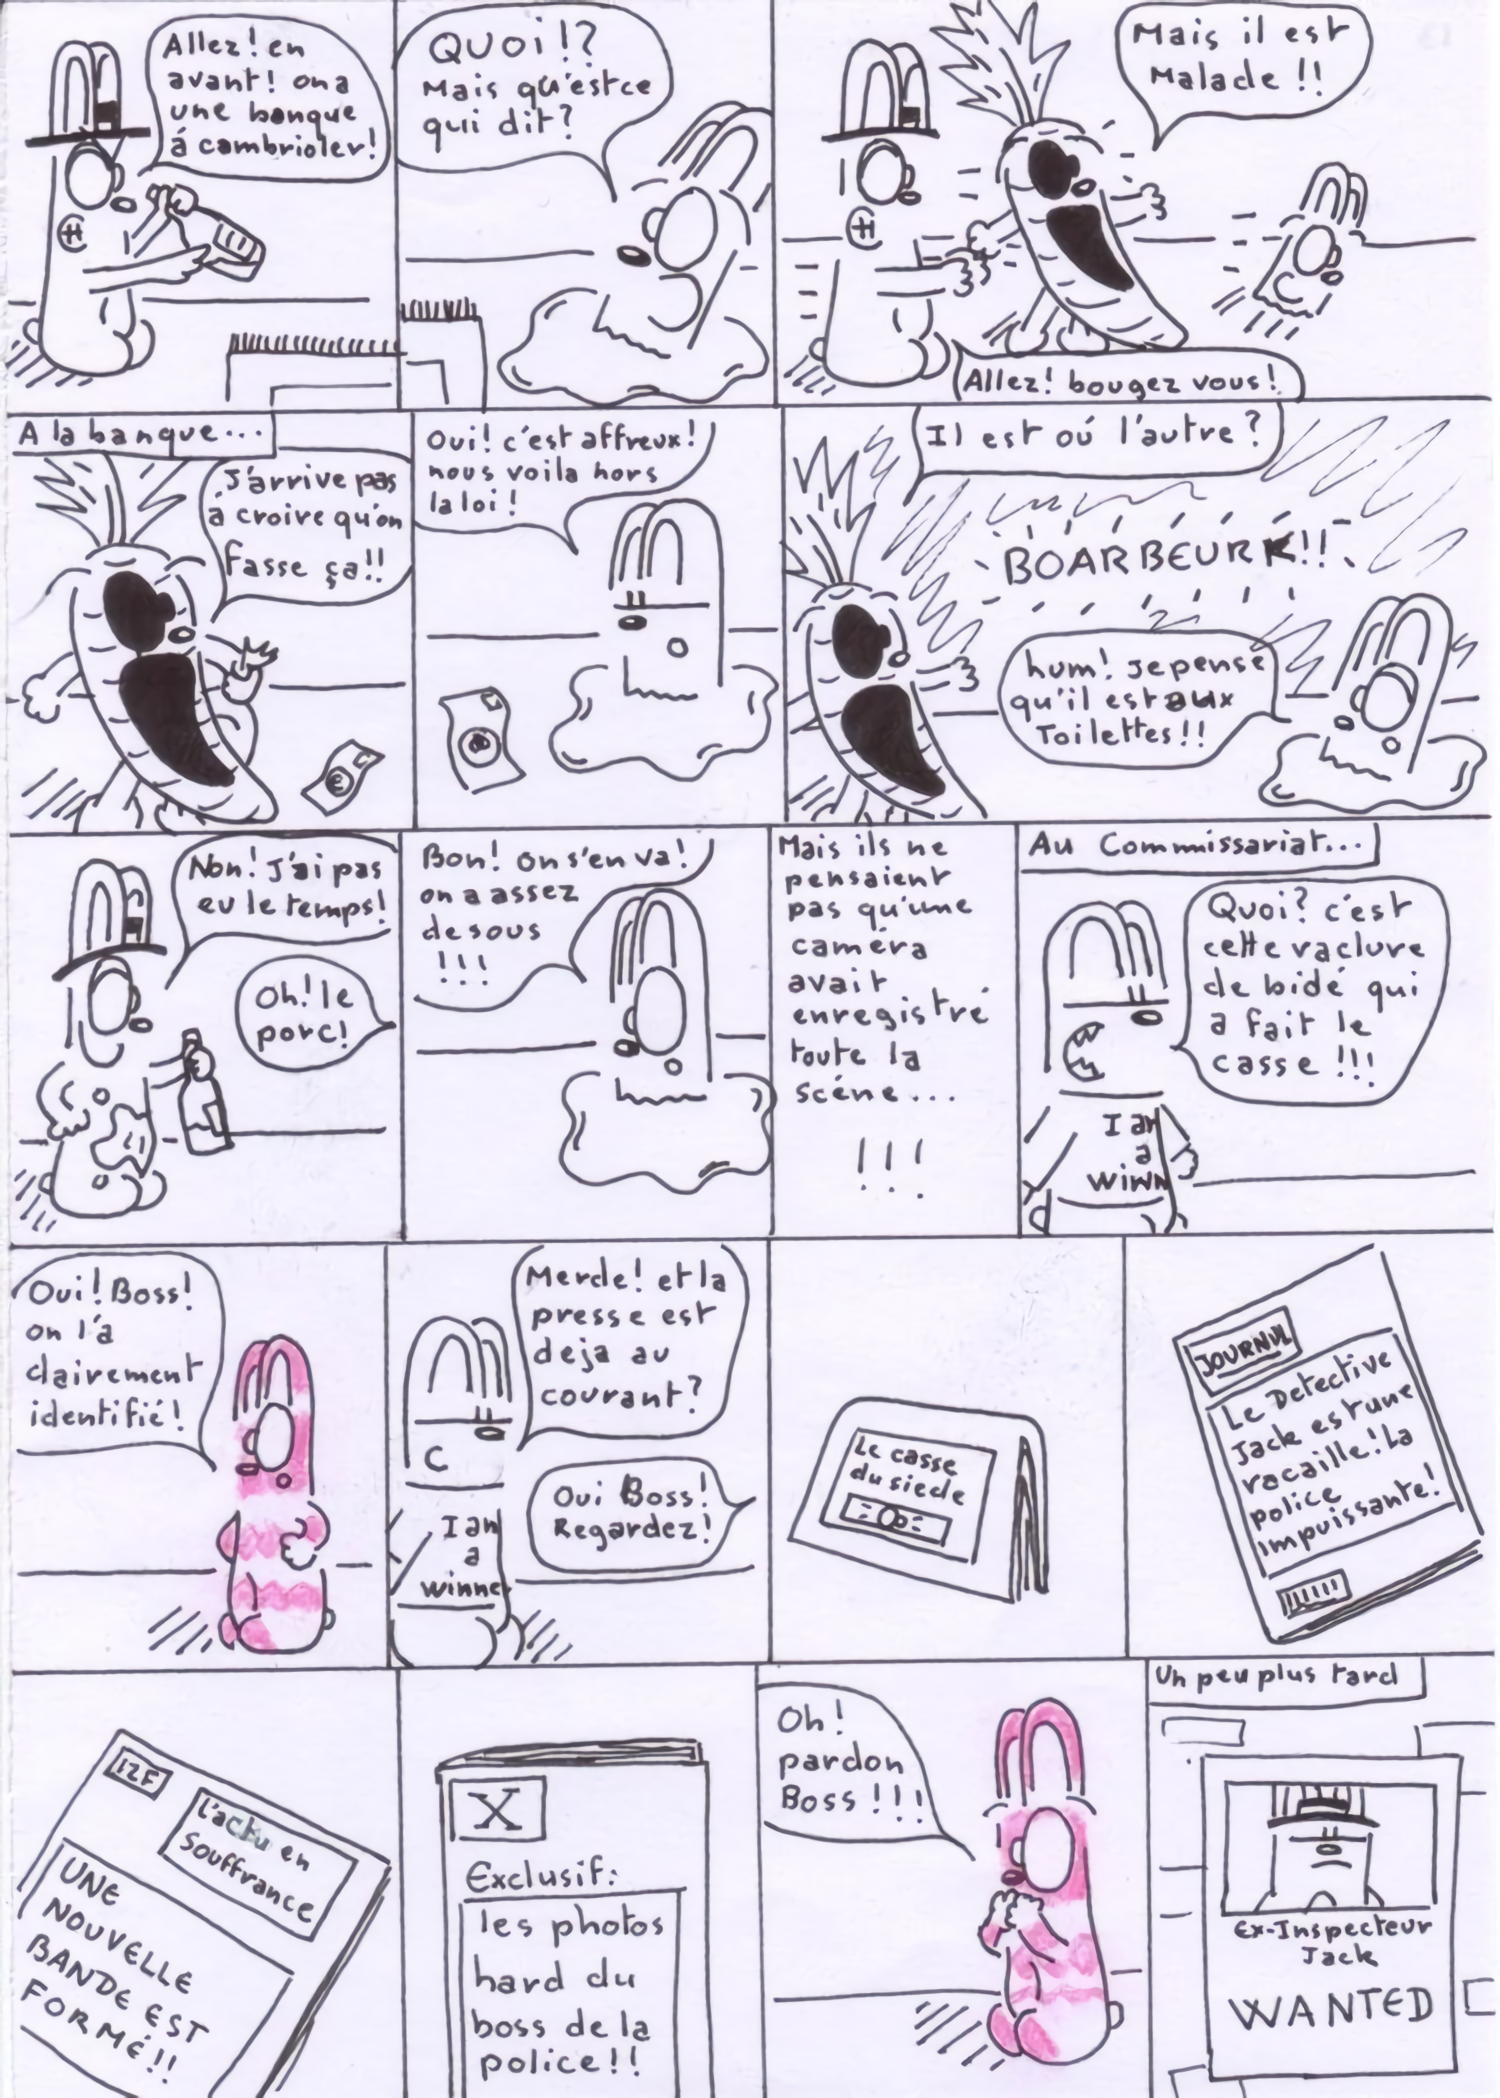 Allez! en
avant! on a
une banque
á cambrioler!
QUOI!?
Mais qu'estce
qui dit?
Mais il est
Malade!!
Allez! bougez vous!
A la banque...
J'arrive pas
à croire qu'on
fasse ça!!
Oui! c'est affreux!
nous voila hors
la loi!
Il est où l'autre?
BOARBEURK!!
hum! je pense
qu'il est aux
Toilettes!!
Non! J'ai pas
eu le temps!
Oh! le
porc!
Bon! on s'en va!
on a assez
de sous
!!!
Mais ils ne
pensaient
pas qu'une
caméra
avait
enregistré
toute la
scéne...
!!!
Au Commissariat...
Quoi? c'est
cette raclure
de bidé qui
a fait le
casse!!!
I am
a
WINN
Oui! Boss!
on l'a
clairement
identifié!
Merde! et la
presse est
deja au
courant?
Oui Boss!
Regardez!
I am
a
winne
Le casse
du siecle
JOURNUL
Le Detective
Jack est une
racaille! La
police
impuissante!
IZF
l'actu en
souffrance
UNE
NOUVELLE
BANDE EST
FORMÉ!!
X
Exclusif:
les photos
hard du
boss de la
police!!
Oh!
pardon
Boss!!!
Un peu plus tard
Ex-Inspecteur
Jack
WANTED